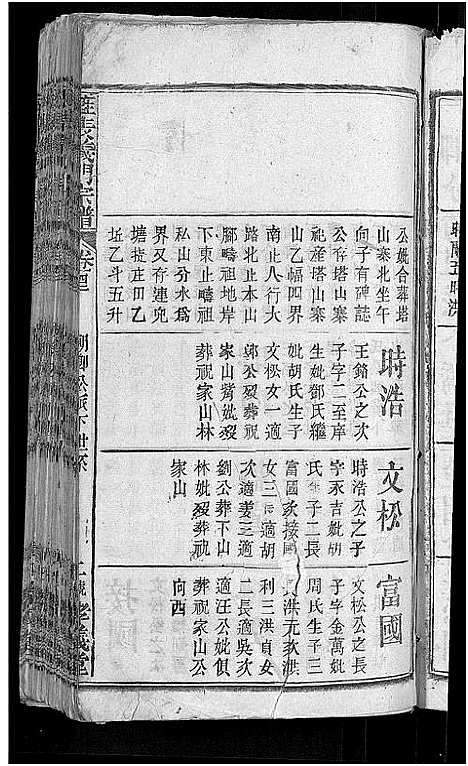 公妣合葬塔
山寨北坐午
向子有碑誌
公存塔山寨
祀產塔山寨
山乙幅四界
南止人行大
路北止本山
脚疇祖地岸
下東止疇祖
私山分水為
界又存連兜
塘捴庄田乙
坵乙斗五升
時浩
王錡公之次
子字二至庠
生妣鄧氏繼
妣胡氏生子
文松女一適
郭公歿葬祝
家山背妣歿
葬祝家山林
文松
時浩公之子
字永吉妣胡
氏生子二長
富國次接國
女三長適胡
次適姜三適
劉公葬下山
林妣歿葬祝
家山
富國
文松公之長
子字金萬妣
周氏生子三
長洪元次洪
利三洪貞女
二長適吳次
適汪公妣俱
葬祝家山公
向西
義門宗譜
卷
孝義堂